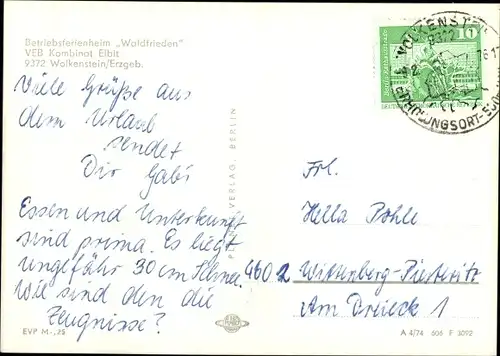 Betriebsferienheim „Waldfrieden"
VEB Kombinat Elbit
9372 Wolkenstein/Erzgeb.
Viele Grüße aus
dem Urlaub
sendet
Dir Gabi
Essen und Unterkunft
sind prima. Es liegt
ungefähr 30 cm Schnee.
Wie sind den die
Zeugnisse?
EVP M -,25
VERLAG, BERLIN
WOLKENSTEIN
9372
10
Frl.
Hella Pohle
4602 Wittenberg-Piesteritz
Am Dreieck 1
A 4/74 606 F 3092